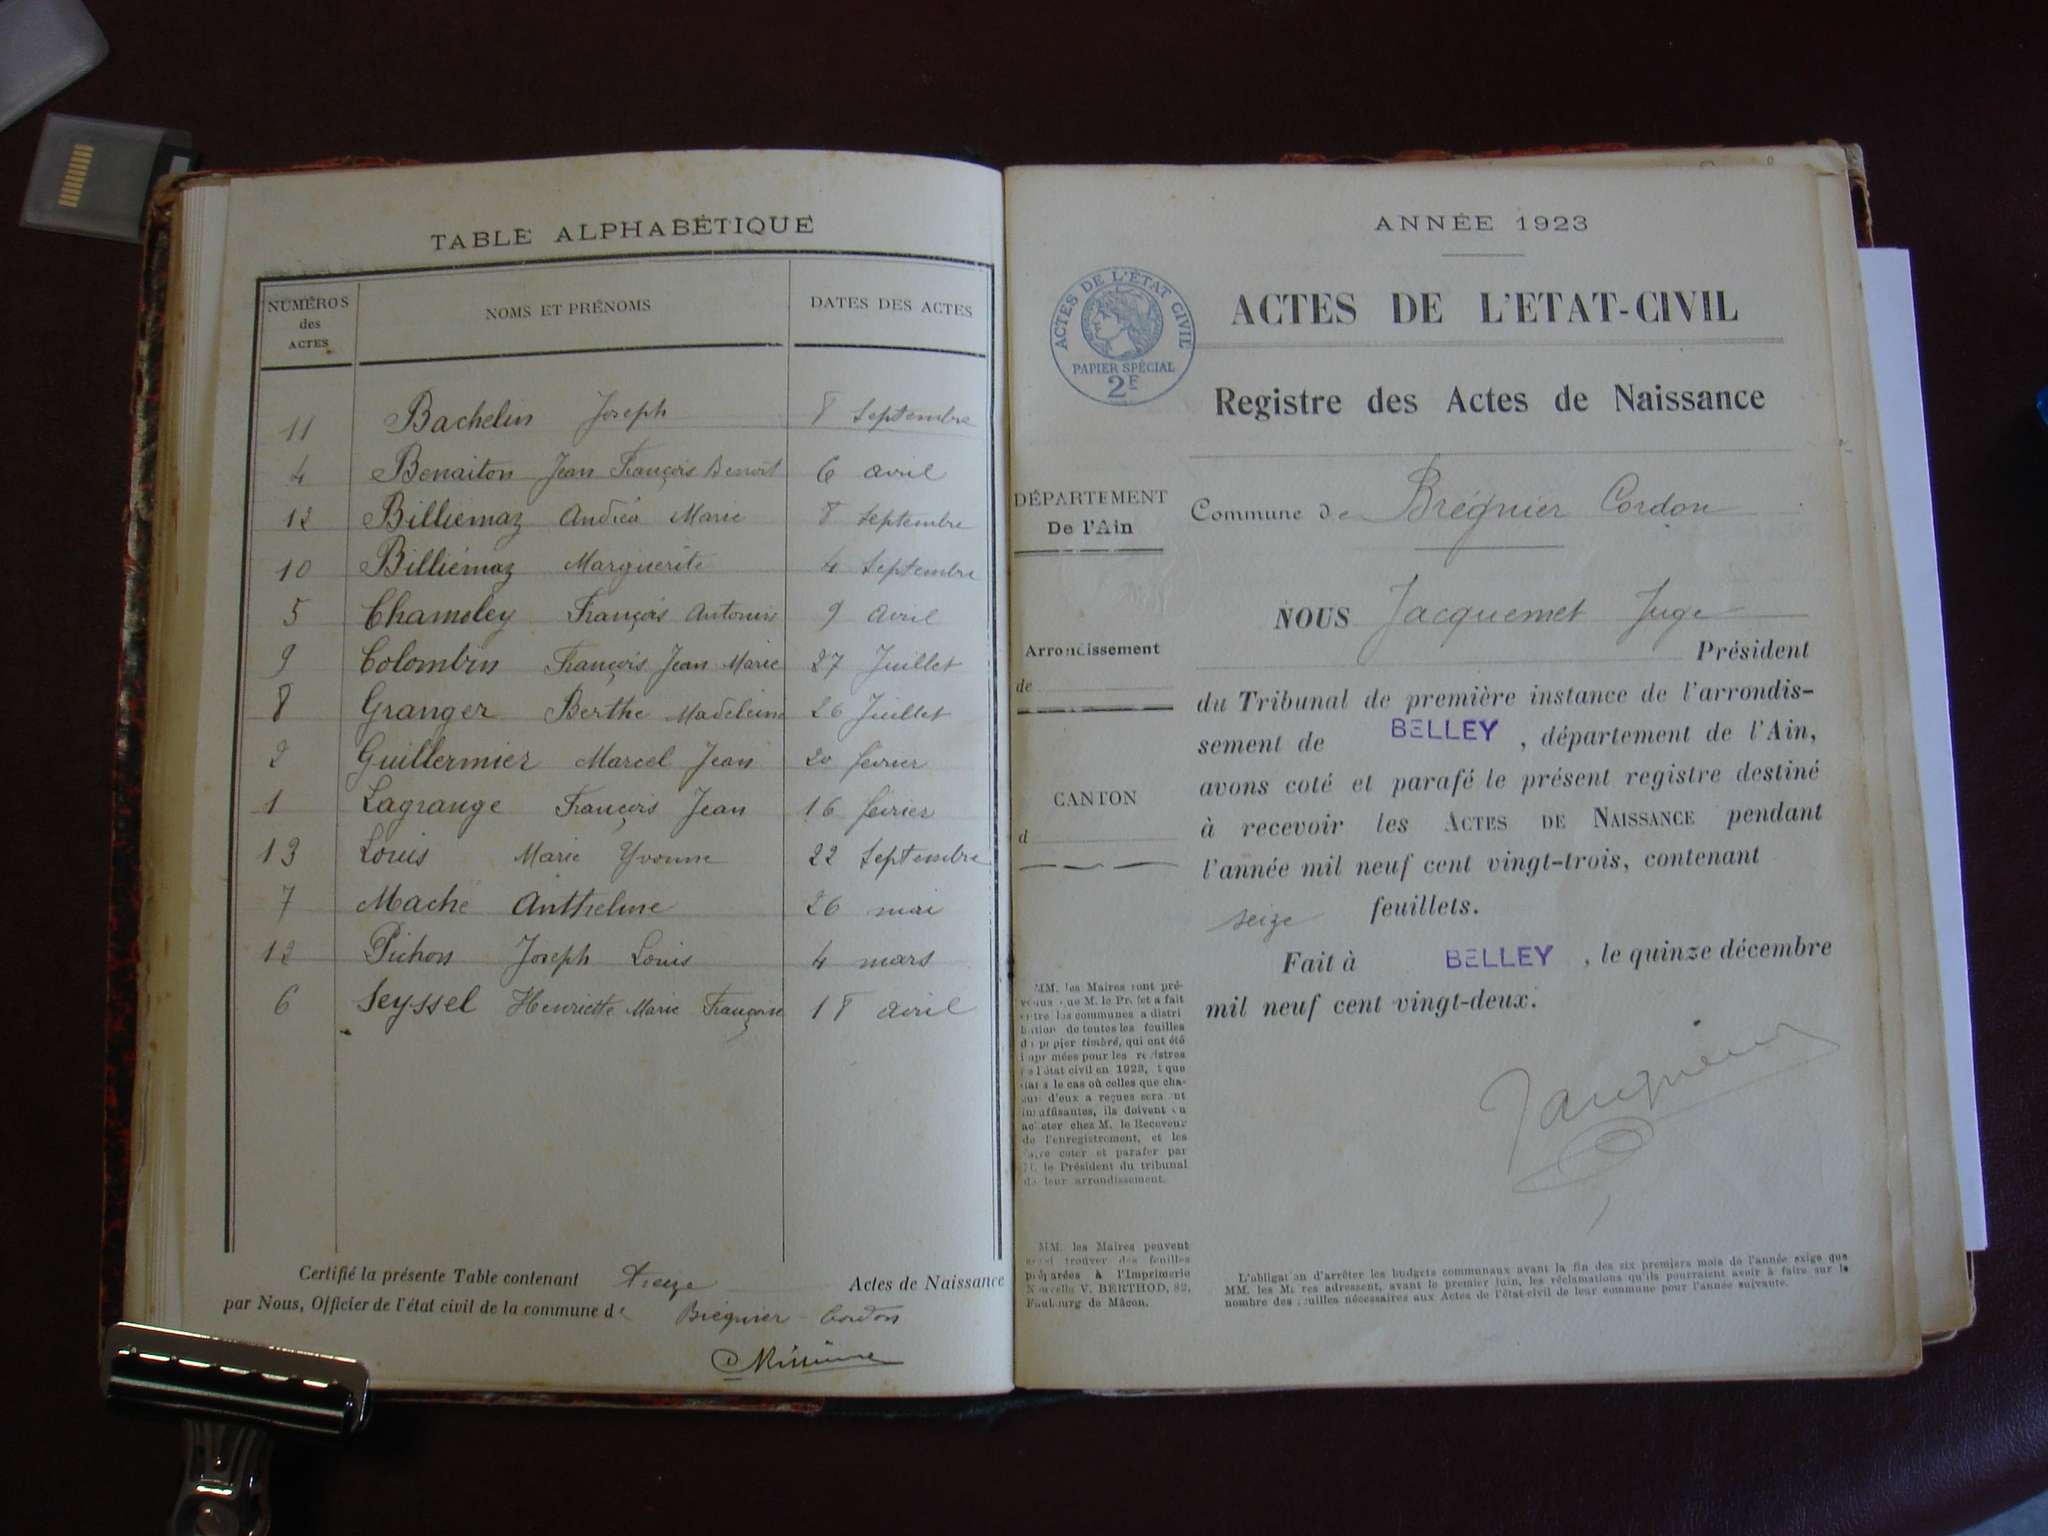 TABLE ALPHABÉTIQUE
NUMÉROS des ACTES NOMS ET PRÉNOMS DATES DES ACTES
11 Bachelin Joseph 8 Septembre
4 Benaiton Jean François Benoit 6 avril
12 Billiemaz Andréa Marie 8 Septembre
10 Billiémaz Marguerite 4 Septembre
5 Chamoley François Antonin 9 avril
9 Colombin François Jean Marie 27 Juillet
8 Granger Berthe Madeleine 26 Juillet
2 Guillermier Marcel Jean 20 février
1 Lagrange François Jean 16 février
13 Louis Marie Yvonne 22 Septembre
7 Maché Anthelme 26 mai
12 Pichon Joseph Louis 4 mars
6 Seyssel Henriette Marie Françoise 18 avril
Certifié la présente Table contenant treize Actes de Naissance
par Nous, Officier de l'état civil de la commune de Brégnier-Cordon
ANNÉE 1923
ACTES DE L'ÉTAT CIVIL
PAPIER SPÉCIAL
2F
ACTES DE L'ETAT-CIVIL
Registre des Actes de Naissance
DÉPARTEMENT
De l'Ain
Commune de Brégnier Cordon
NOUS Jacquemet Juge
Arrondissement
de
Président
du Tribunal de première instance de l'arrondis-
sement de BELLEY, département de l'Ain,
avons coté et parafé le présent registre destiné
CANTON
d
à recevoir les ACTES DE NAISSANCE pendant
l'année mil neuf cent vingt-trois, contenant
seize feuillets.
Fait à BELLEY, le quinze décembre
mil neuf cent vingt-deux.
MM. les Maires sont pré-
venus que M. le Préfet a fait
entre les communes a distri
bution de toutes les feuilles
de papier timbré, qui ont été
imprimées pour les registres
de l'état civil en 1923, et que
dans le cas où celles que cha-
cun d'eux a reçues seraient
insuffisantes, ils doivent en
acheter chez M. le Receveur
de l'enregistrement, et les
faire coter et parafer par
M. le Président du tribunal
de leur arrondissement.
MM. les Maires peuvent
aussi trouver des feuilles
préparées à l'Imprimerie
Nouvelle V. BERTHOD, 82,
Faubourg de Mâcon.
L'obligation d'arrêter les budgets communaux avant la fin des six premiers mois de l'année exige que
MM. les Maires adressent, avant le premier juin, les réclamations qu'ils pourraient avoir à faire sur le
nombre des feuilles nécessaires aux Actes de l'état-civil de leur commune pour l'année suivante.